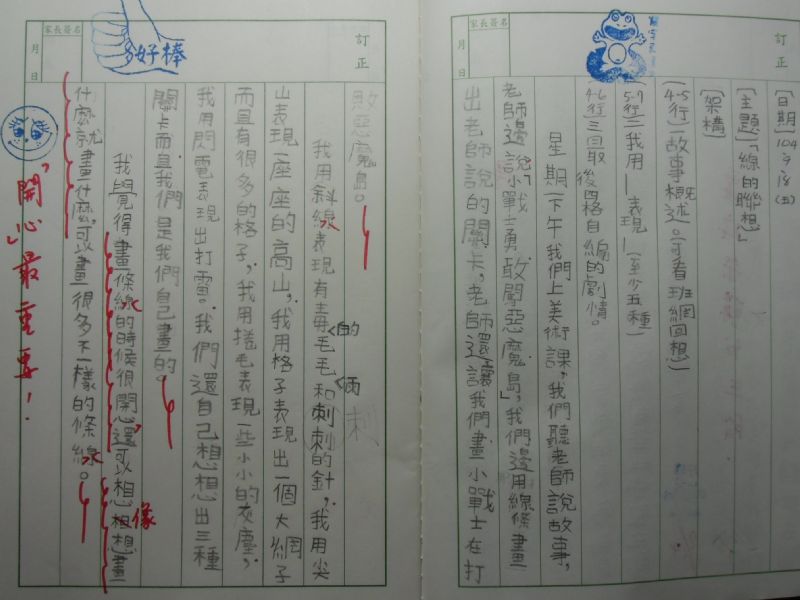 家長簽名
月 日
訂正
〔日期〕104.9.18(五)
〔主題〕「線的聯想」
〔架構〕
(4-5行)一故事概述。(可看班網回想)
(5-7行)二我用—表現—(至少五種)
(4-6行)三回取後四格自編的劇情。
星期一下午我們上美術課,我們聽老師說故事,
老師邊說「小戰士勇敢闖惡魔島」,我們邊用線條畫
出老師說的關卡,老師還讓我們畫小戰士在打
家長簽名
月 日
訂正
多好棒
敗惡魔島。
我用斜線表現有毒的毛毛和刺刺的針,我用尖
山表現一座座的高山,我用格子表現出一個大網子
而且有很多的格子,我用捲毛表現一些小小的灰塵,
我用閃電表現出打雷。我們還自己想想出三種
關卡而且我們是我們自己畫的。
我覺得畫條線的時候很開心還可以想想想畫
像
什麼就畫什麼,可以畫很多不一樣的條線。
「開心」最重要!